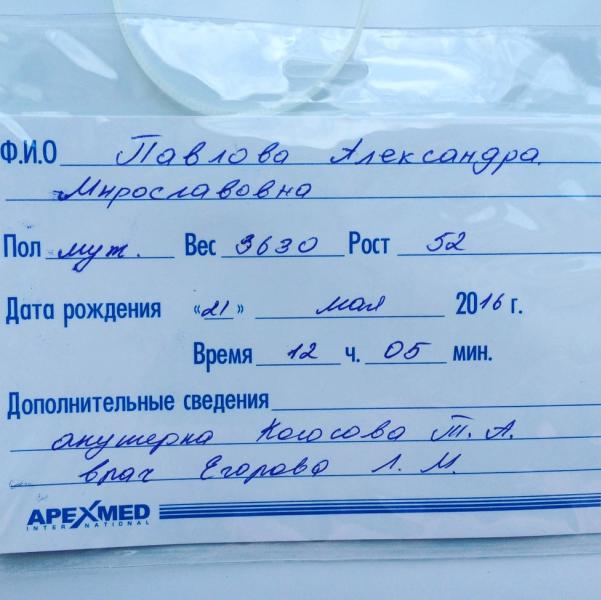 Ф.И.О Павлова Александра
Мирославовна
Пол муж. Вес 3630 Рост 52
Дата рождения «21» мая 2016 г.
Время 12 ч. 05 мин.
Дополнительные сведения
акушерка Колосова Т. А.
врач Егорова Л. М.
APEXMED
INTERNATIONAL